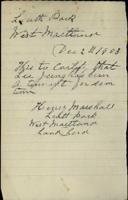 Lochtt Park
West Maitland
Dec 24 1903
This to Certify that
Lee Jeung has been
a tennant for som
time
Henry Marshall
Lochtt Park
West Maitland
Land Lord